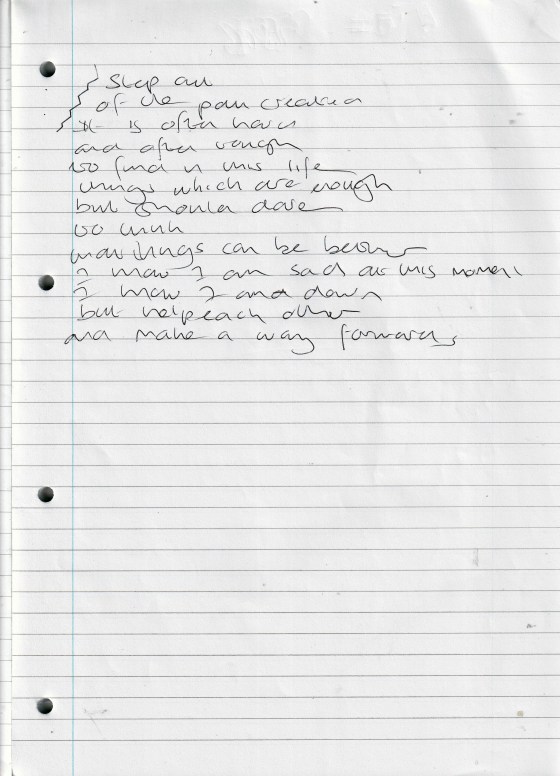 Stop all
of the pain created
It is often hard
and often rough
to find in this life
things which are enough
but should dare
to think
that things can be better
I know I am sad at this moment
I know I and down
but help each other
and make a way forwards